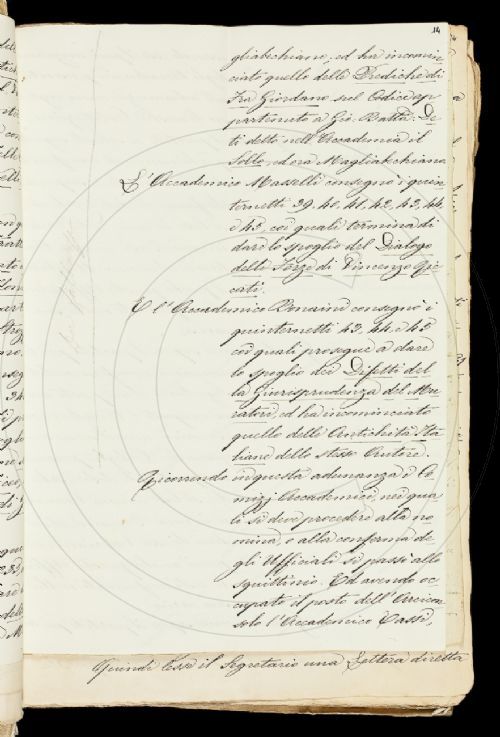 14
gliabechiano; ed ha incomin,
ciato quello delle Prediche di
Fra Giordano sul Codice ap
partenuto a Gio. Batta: De
ti detto nell'Accademia il
Sollo, ed ora Magliabechiano.
L'Accademico Masselli consegnò i quin
ternetti 39, 40, 41, 42, 43, 44,
e 45, coi quali termina di
dare lo spoglio del Dialogo
delle Forze di Vincenzo Gie
cati.
E l'Accademico Bonaini consegnò i
quinternetti 43, 44, e 45
coi quali prosegue a dare
lo spoglio dei Difetti del
la Giurisprudenza del Mu
ratori, ed ha incominciato
quello delle Antichità Ita
liane dello stesso Autore.
Ricorrendo in questa adunanza i Co
mizzi Accademici, nei qua
li si deve procedere alla no
mina, o alla conferma de
gli Uffiziali si passò allo
squittinio. Ed avendo oc
cupato il posto dell'Arcicon
solo l'Accademico Casti,
Quindi lesse il Segretario una Lettera diretta